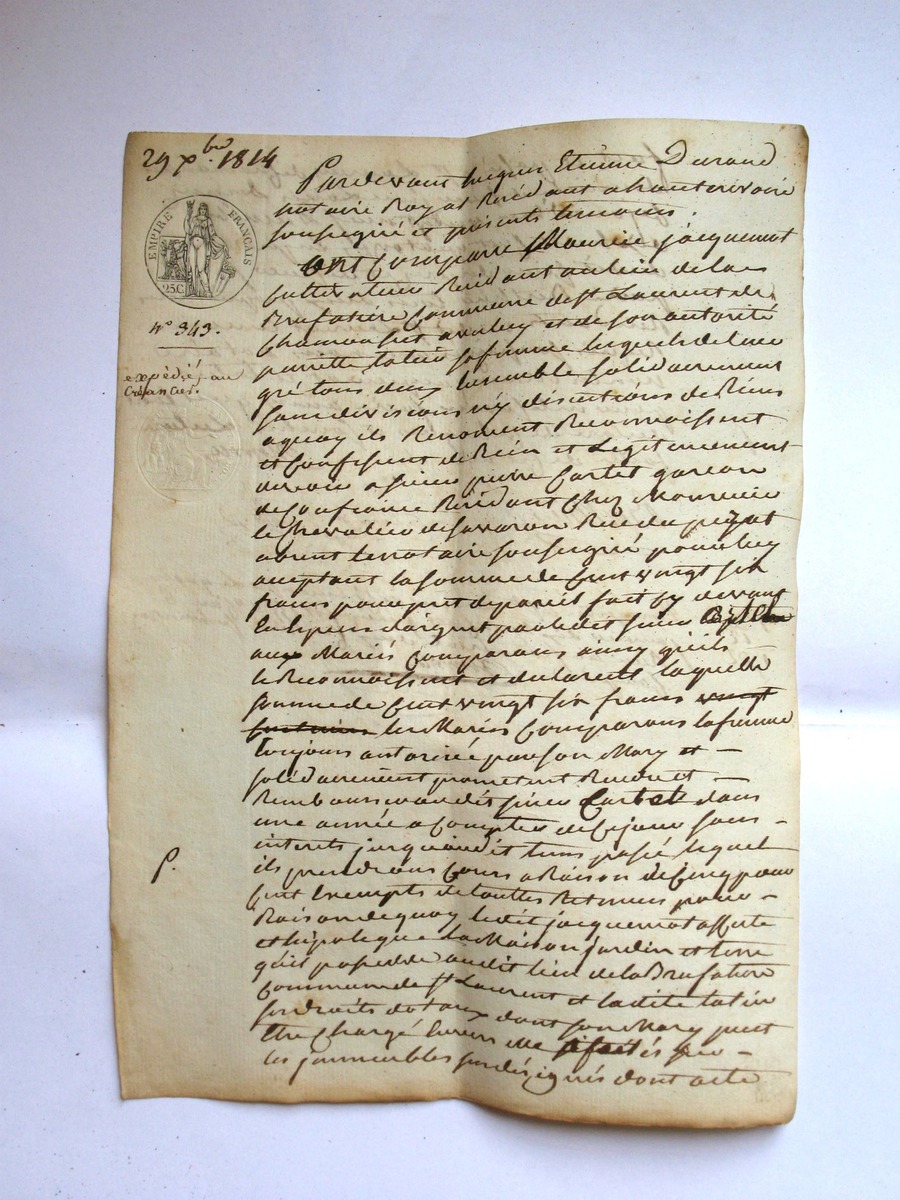 29 Xbre 1814
EMPIRE FRANÇAIS
25.C.
N° 343.
expédié au
Créancier.
Pardevant Jacques Etienne Durand
notaire Royal Résidant a hauterivoire
soussigné et présents temoins.
Ont Comparu Maurice jacquemot
Cultivateur Résidant au lieu de la
Brufatière Commune de St Laurent de
Chamousset avec luy et de son autorité
pierrette tatin sa femme lesquels de leur
gré tous deux Ensemble solidairement
sans division ny discutions de Biens
a quoy ils Renoncent Reconnoissent
et Confessent de Bien et Legitimement
devoir a sieur pierre Cartet garcon
de Confiance Résidant Chez Monsieur
le Chevalier de savaron Rue du peyrat
absent le notaire soussigné pour luy
acceptant la somme de Cent vingt six
francs pour pret de pareil fait cy devant
En Espèces d'argent par le dit sieur Cartet
aux Mariés Comparans ainsy qu'ils
le Reconnoissent et declarent laquelle
somme de Cent vingt six francs vingt
centimes les Mariés Comparans la femme
toujours autorisée par son Mary et –
solidairement promettent Rendre et –
Rembourser au dit sieur Cartet dans
une année a Compter de Ce jour sans –
interets jusqu'audit tems passé lequel
ils prendrons Cours a Raison de Cinq pour
Cent Exempts de toutes Retenues pour –
Raison de quoy le dit jacquemot affecte
et hipoteque sa Maison jardin et terre
qu'il possedde audit lieu de la Brufatière
Commune de St Laurent et la dite tatin
ses droits dotaux dont son Mary peut
Etre Chargé Envers Elle
les jmmeubles sus désignés dont acte
P.